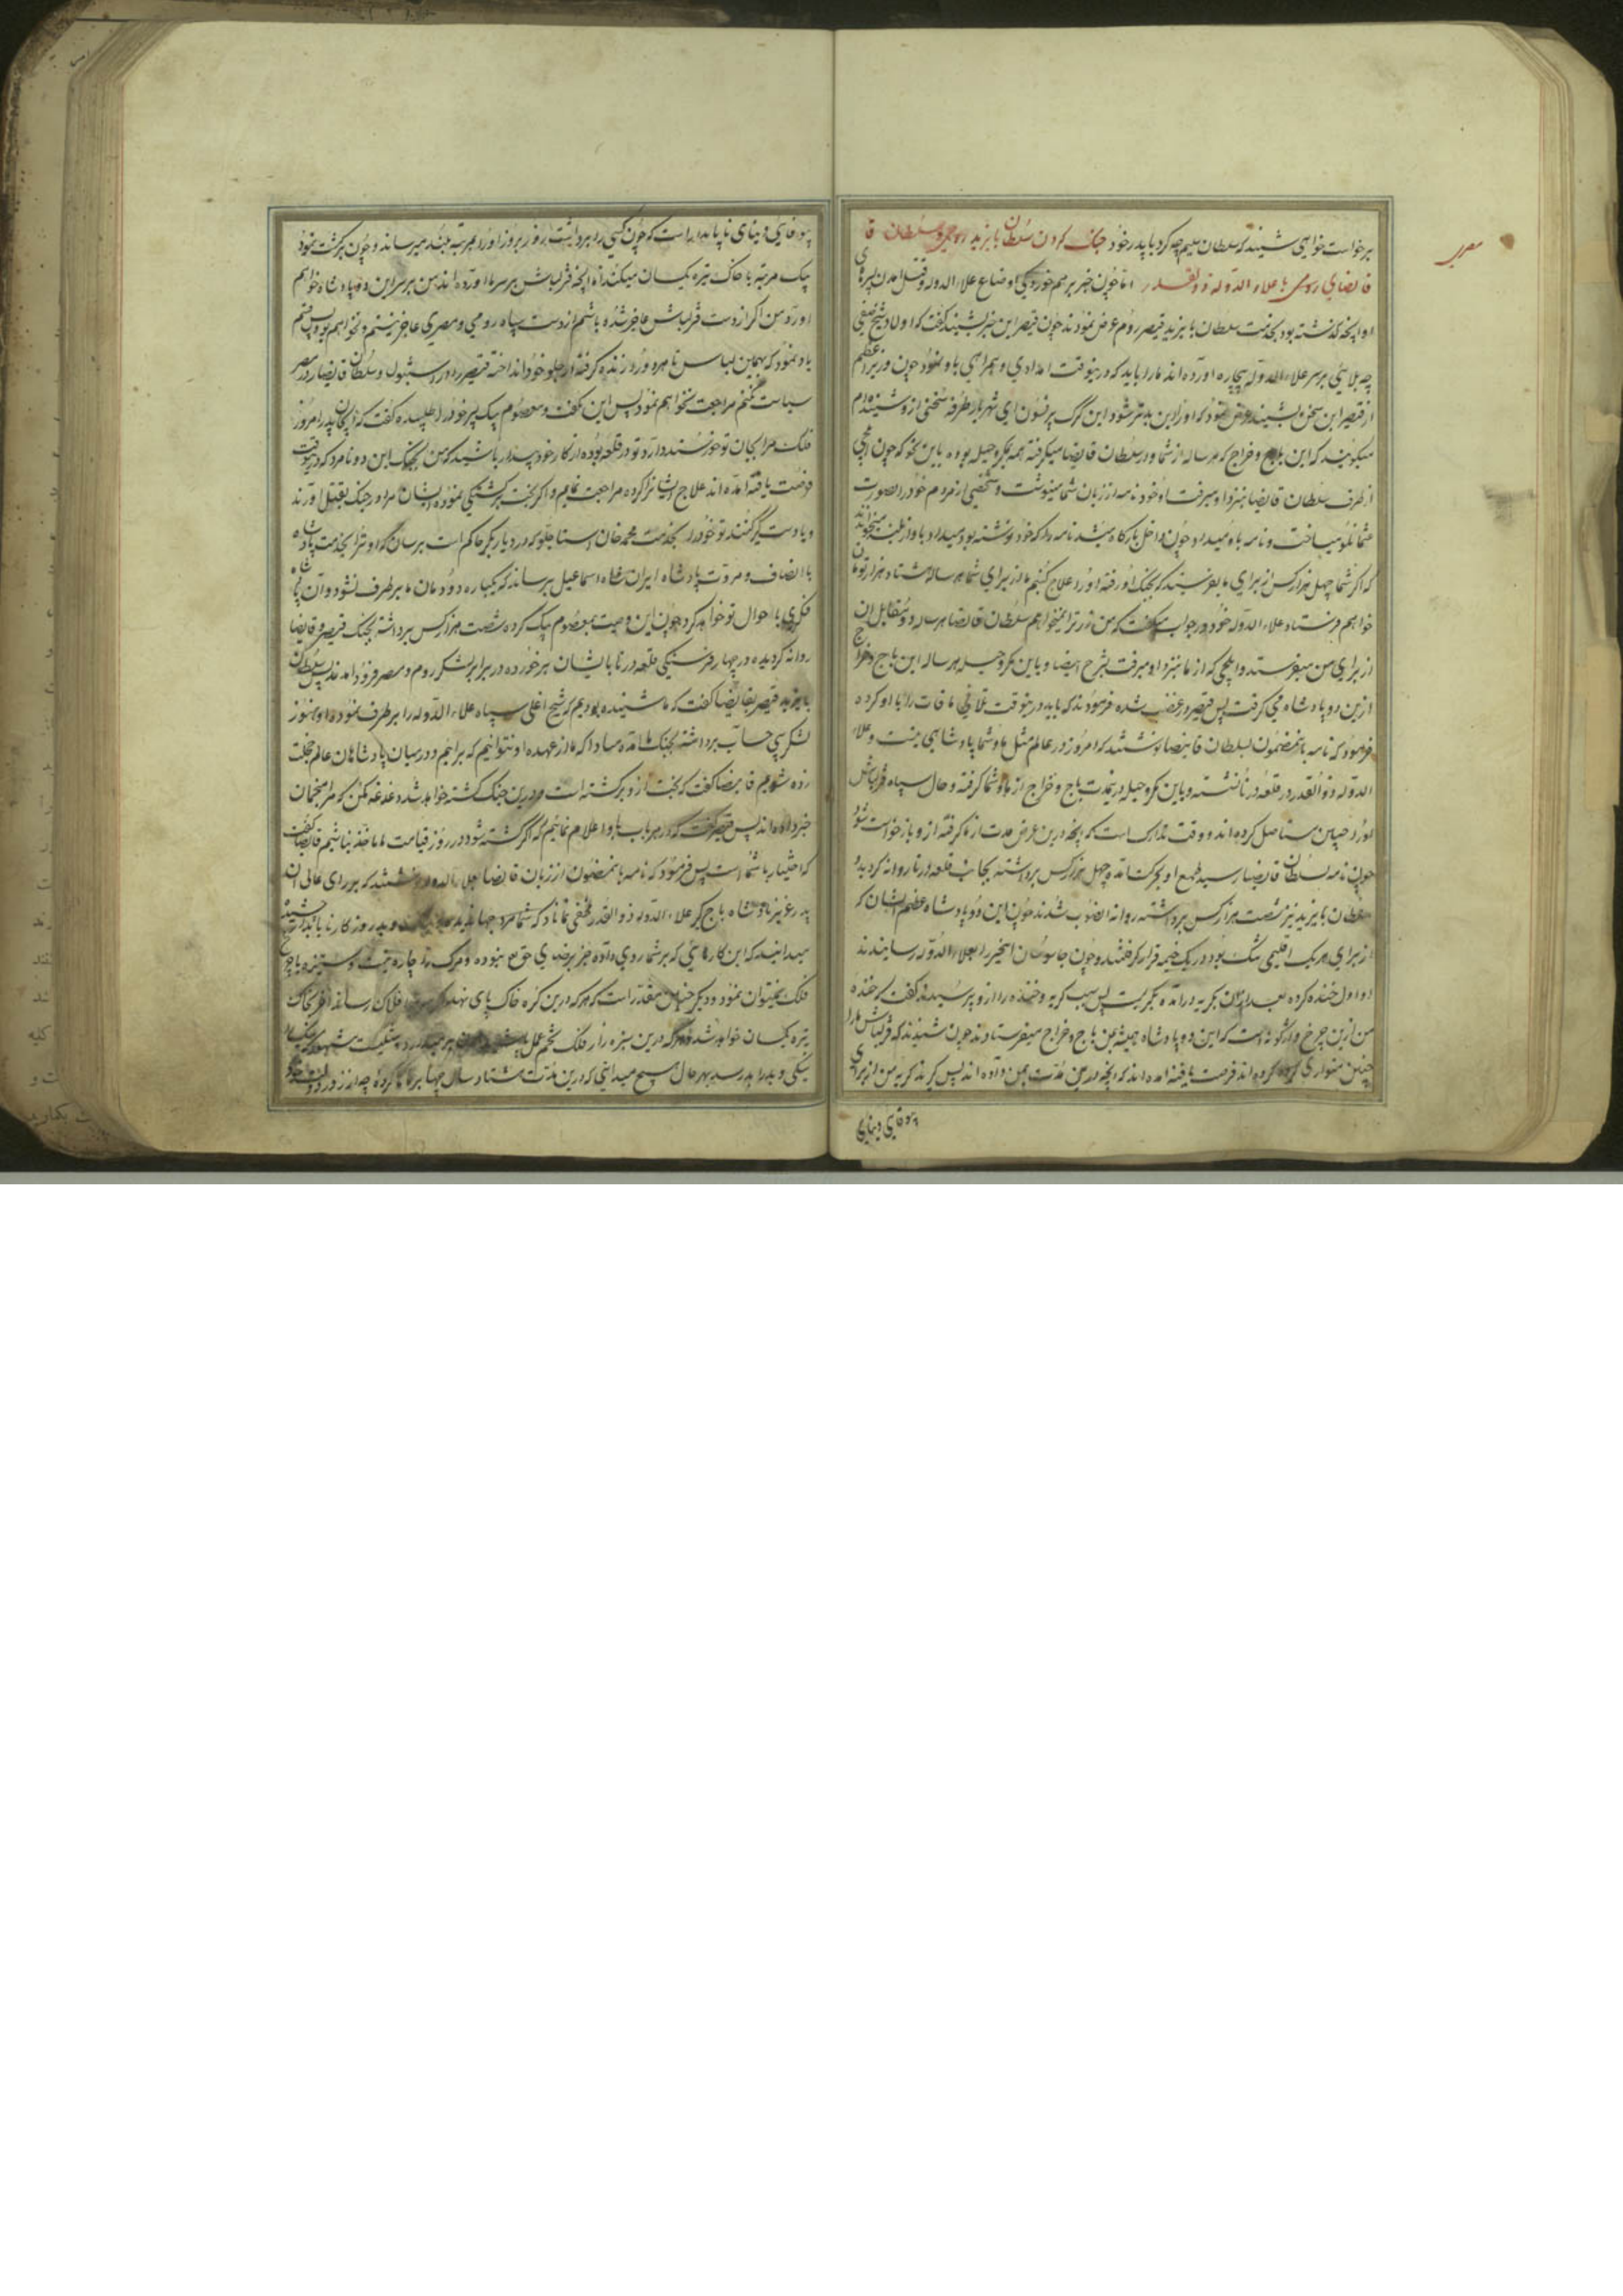 برخواست خواهی شنیند که سلطان سلیم چه کرد با پدر خود جنک کردن سلطان بایزید رومی و سلطان قا
مصری
قانضای رومی با علاء الدوله ذوالقدر اما چون خبر برهم خوردیکی اوضاع علاء الدوله و قتل امدن پسرهای
او و انچه کذشته بود بخدمت سلطان بایزید قیصر روم عرض نمودند چون قیصر این خبر بشنیند کفت که اولاد شیخ صفی
چه بلائی بر سر علاء الدوله بیچاره اورده اند مارا باید که درینوقت امدادی و همراهی باو نمود چون وزیر اعظم
از قیصر این سخن بشنیند عرض نمود که اورا ازین بدتر شود این کرک پرفسون ای شهریار طرفه سخنی از و شنیده ام
میکویند که این باج و خراج که هر ساله از شما و از سلطان قانضا میکرفته همه بمکر و حیله بوده باین نحو که چون ایلچی
از طرف سلطان قانضا بنزد او میرفت او خود نامه از زبان شما مینوشت و شخصی از مردم خود را بصورت
عثمانلو میساخت و نامه باو میداد و چون داخل بارکاه میشد نامه را که خود نوشته بود میداد باواز بلند میخواندند
که اکر شما چهل هزار کس از برای ما بفرستید که بجنک اورفته اورا علاج کنیم ما از برای شما هر ساله هشتاد هزار تومان
خواهیم فرستاد علاء الدوله خود در جواب میکفت که من زر ترا نمیخواهم سلطان قانضا هر ساله دو مقابل ان
از برای من میفرستد و ایلچی که از ما بنزد او میرفت بشرح ایضا و باین مکر و حیله هر ساله این باج و خراج
ازین دو پادشاه می کرفت پس قیصر در غضب شده فرمودند که باید درینوقت تلافی مافات را با او کرده
فرمود که نامه باینمضمون بسلطان قانضا نوشتند که امروز در عالم مثل ما و شما پادشاهی نیست و علاء
الدوله ذوالقدر در قلعه درنا نشسته و باین مکر و حیله درینمدت باج و خراج از ما و شما کرفته و حال سپاه قزلباش
اورا چنین مستاصل کرده اند و وقت تدارک است که انچه درین عرض مدت از ما کرفته از و بازخواست شود
چون نامه سلطان قانضا رسید طمع او بحرکت امده چهل هزار کس برداشته بجانب قلعه درنا روانه کردید و
سلطان بایزید نیز شصت هزار کس برداشته روانه انصوب شدند چون این دو پادشاه عظیم الشان که
از برای هر یک اقلیمی تنک بود در یک خیمه قرار کرفتند و چون جاسوسان اینخبر را بعلاء الدوله رسانیدند
او اول خنده کرده بعد ازان بکریه درامده بکریست پس سبب کریه و خنده را از و پرسیدند کفت که خنده
من ازین چرخ واژکونه است که این دو پادشاه همیشه بمن باج و خراج میفرستادند چون شنیدند که قزلباش مارا
چنین متواری کرده اند فرصت یافته امده اند که انچه درین مدت بمن داده اند پس کیرند کریه من از برای
بیوفایی دنیای
بیوفایی دنیای ناپایدار است که چون کسی را برداشت روز بروز اورا بمرتبه بلند میرساند و چون برکشت بنوک
یک مرتبه با خاک تیره یکسان میکند تا انچه قزلباش بر سر ما اورده اند من بر سر این دو پادشاه خواهم
اورد من اکر از دست قزلباش عاجز شده باشم از دست سپاه رومی و مصری عاجز نیستم و نخواهم بود پس قسم
یاد نمود که بهمین لباس تا هر دو را زنده کرفته از جلو خود انداخته قیصر را در استنبول و سلطان قانضا را در مصر
سیاست نکنم مراجعت نخواهم نمود پس این بکفت و معصوم بیک پسر خود را طلبیده کفت که ای جان پدر امروز
فلک مرا بجان تو خرسند دارد تو در قلعه بوده از کار خود بیدار باشید که من بجنک این دو نامرد که درینوقت
فرصت یافته امده اند علاج ایشانرا کرده مراجعت نمایم و اکر بخت برکشتکی نموده ایشان مرا در جنک بقتل اورند
و یا دستکیر کنند تو خود را بخدمت محمد خان استاجلو که در دیار بکر حاکم است برسان که او ترا بخدمت پادشاه
با انصاف و مروت پادشاه ایران شاه اسماعیل برساند که یکباره دودمان ما برطرف نشود و ان شاه
فکری با احوال تو خواهد کرد چون این وصیت بمعصوم بیک کرده شصت هزار کس برداشته بجنک قیصر و قانضا
روانه کردیده در چهار فرسنکی قلعه درنا باایشان برخورده در برابر لشکر روم و مصر فرود امدند پس سلطان
بایزید قیصر بقانضا کفت که ما شنیده بودیم که شیخ اغلی سپاه علاء الدوله را برطرف نموده او هنوز
لشکر بی حساب برداشته بجنک ما امده مبادا که ما از عهده او نتوانیم که برائیم و در میان پادشاهان عالم خجلت
زده شویم قانضا کفت که بخت از و برکشته است و درین جنک کشته خواهد شد دغدغه مکن که مرا منجمان
خبر داده اند پس قیصر کفت که در هر باب باو اعلام نمائیم که اکر کشته شود در روز قیامت ما ماخوذ نباشیم قانضا کفت
که اختیار با شماست پس فرمود که نامه باینمضمون از زبان قانضا بعلاء الدوله نوشتند که بر رای عالی ان
پدر عزیز پادشاه باج کیر علاء الدوله ذوالقدر مخفی نماناد که شما مرد جهاندیده
میدانید که این کارهائی که بر شما روی داده جز برضای حق نبوده و مرک را چاره نیست و ستیزه با چرخ
فلک نمیتوان نمود و دیکر چنین مقدر است که هر که درین کره خاک پای نهد
تیره یکسان خواهد شد و هر که درین سبزه زار فلک تخم عمل
نیکی و بد را بد رسد بهر حال هیچ میدانی که درین مدت هشتاد سال چها بر ما کرده چه از زور و